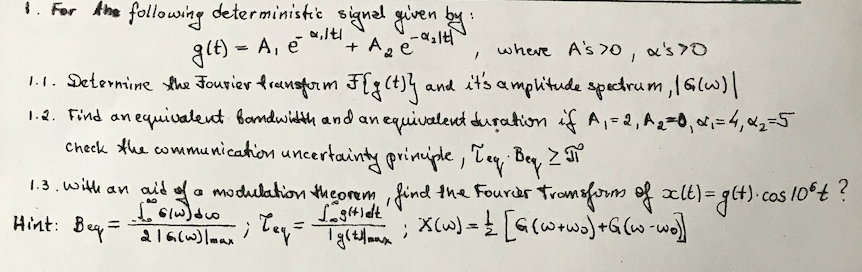 1. For the following deterministic signal given by:
g(t) = A₁ e^{-α₁|t|} + A₂ e^{-α₂|t|}, where A's >0, α's >0
1.1. Determine the Fourier transform F{g(t)} and it's amplitude spectrum, |G(ω)|
1.2. Find an equivalent bandwidth and an equivalent duration if A₁=2, A₂=0, α₁=4, α₂=5
Check the communication uncertainty principle, τeq · Beq ≥ π
1.3. With an aid of a modulation theorem, find the Fourier Transform of x(t) = g(t)·cos 10⁶t ?
Hint: Beq = ∫_{-∞}^{∞} G(ω)dω / 2|G(ω)|max ; τeq = ∫_{-∞}^{∞} g(t)dt / |g(t)|max ; X(ω) = ½ [G(ω+ω₀)+G(ω-ω₀)]